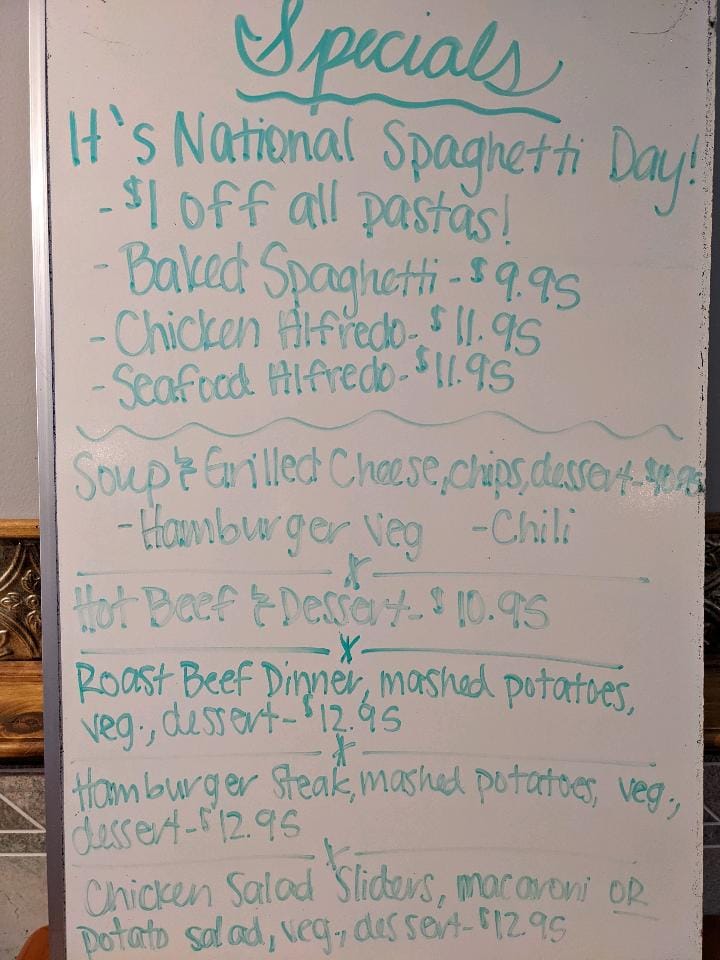 Specials
It's National Spaghetti Day!
- $1 off all pastas!
- Baked Spaghetti - $9.95
- Chicken Alfredo - $11.95
- Seafood Alfredo - $11.95
Soup & Grilled Cheese, chips, dessert - $10.95
- Hamburger veg - Chili
Hot Beef & Dessert - $10.95
Roast Beef Dinner, mashed potatoes,
veg., dessert - $12.95
Hamburger Steak, mashed potatoes, veg.,
dessert - $12.95
Chicken Salad Sliders, macaroni OR
potato salad, veg., dessert - $12.95